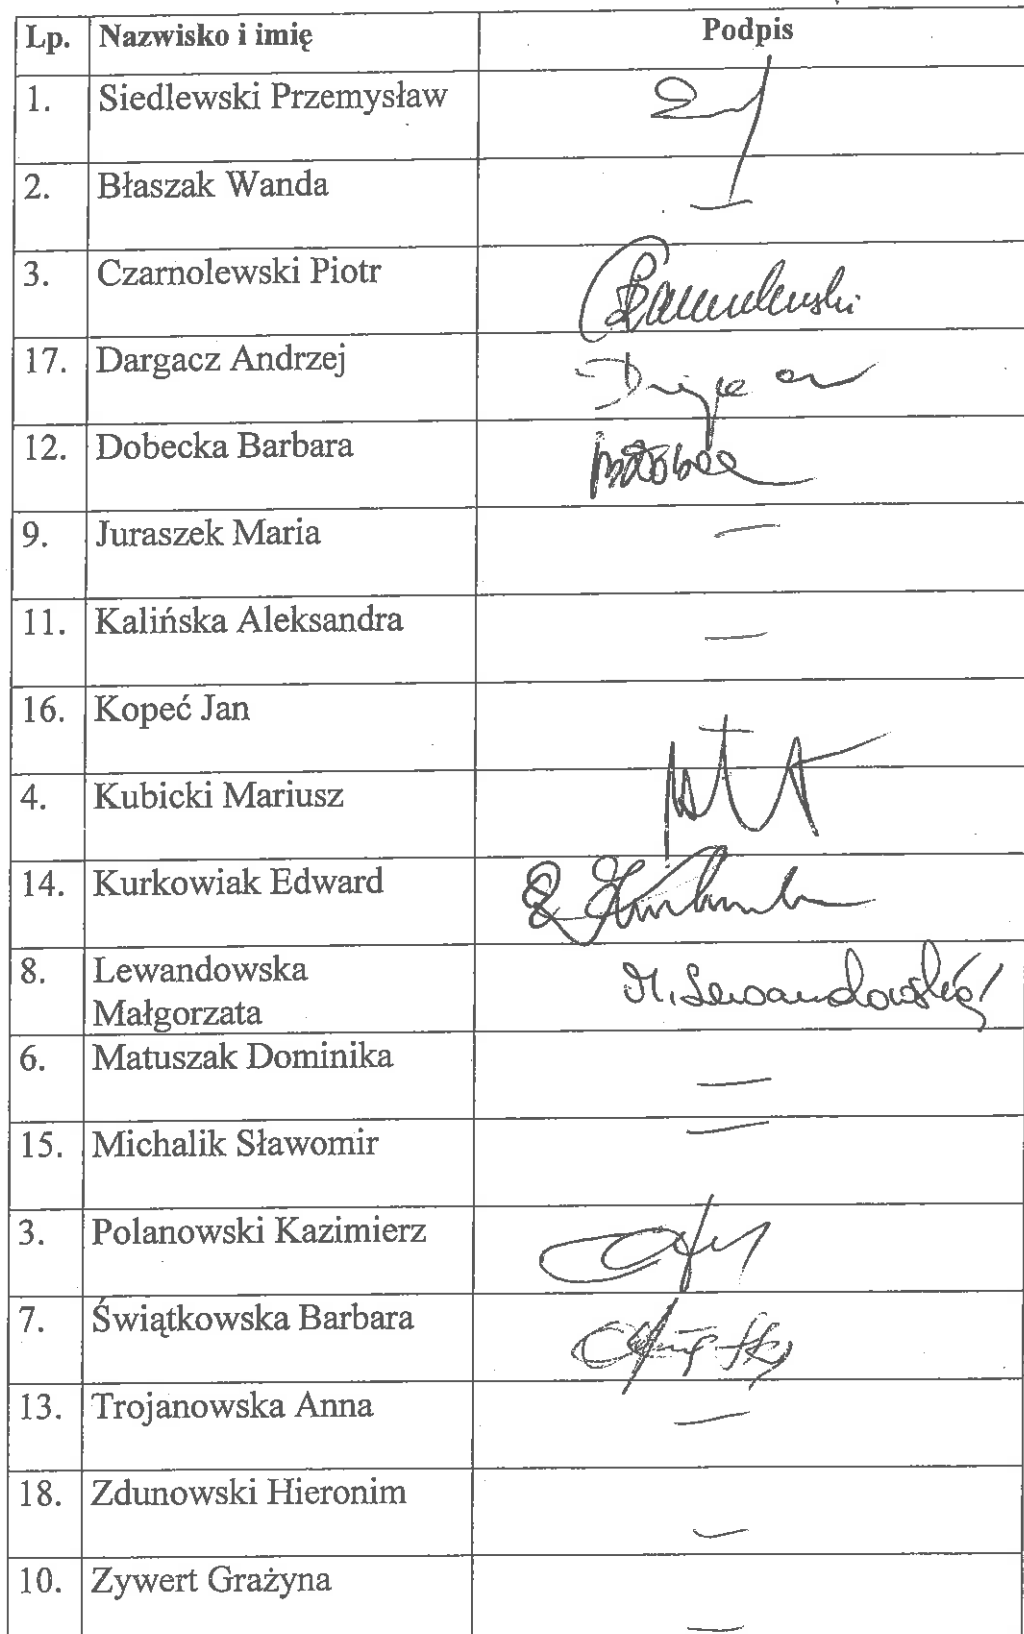 Lp. Nazwisko i imię Podpis
1. Siedlewski Przemysław
2. Błaszak Wanda —
3. Czarnolewski Piotr
17. Dargacz Andrzej
12. Dobecka Barbara
9. Juraszek Maria —
11. Kalińska Aleksandra —
16. Kopeć Jan
4. Kubicki Mariusz
14. Kurkowiak Edward
8. Lewandowska M. Lewandowska
Małgorzata
6. Matuszak Dominika —
15. Michalik Sławomir —
3. Polanowski Kazimierz
7. Świątkowska Barbara
13. Trojanowska Anna —
18. Zdunowski Hieronim —
10. Zywert Grażyna —